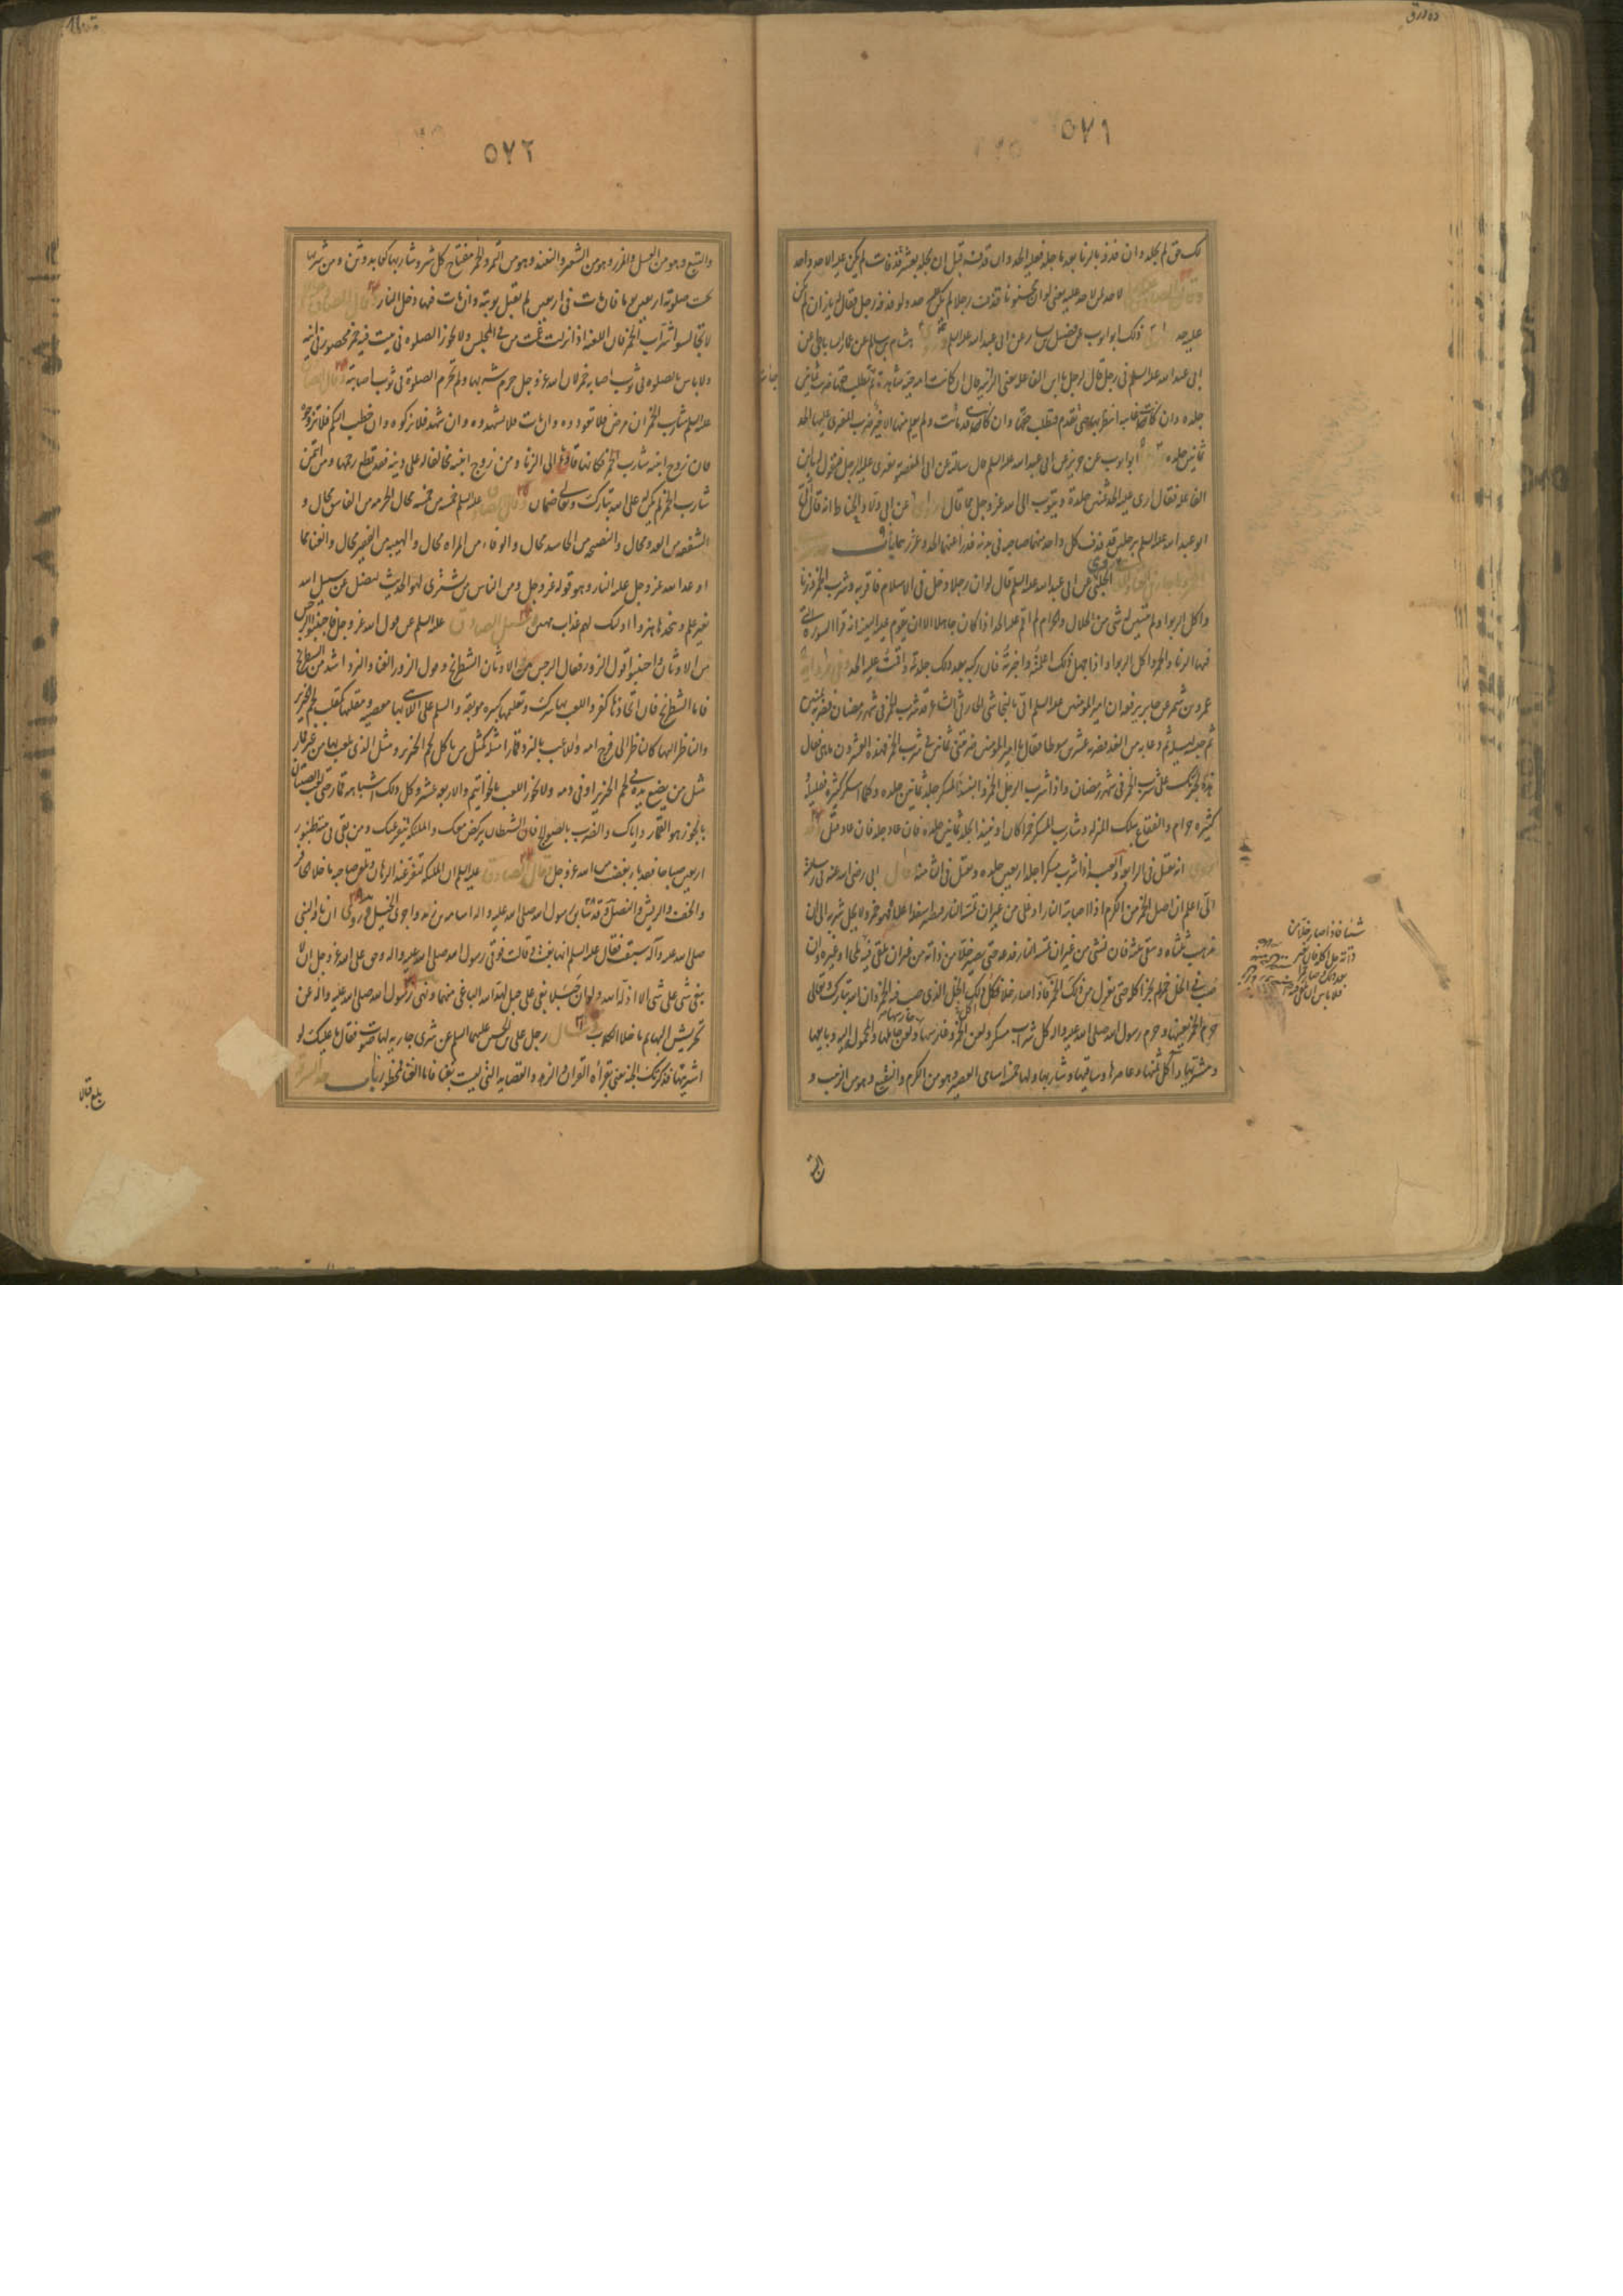 ٥٧١
لك حق لم يجلد وان قذفه بالزنا بعد ما جلد فعليه الحد وان قذفه قبل ان يجلد بعشر قذفات لم يكن عليه الا حد واحد
لا حد لمن لا حد عليه يعنى لو ان مجنونا قذف رجلا لم يكن عليه حد ولو قذفه رجل فقال له يا زان لم يكن
عليه حد روى ذلك ابو ايوب عن فضيل بن يسار عن ابى عبد الله عليه السلم وروى هشام بن سالم عن عمار الساباطى عن
ابى عبد الله عليه السلم فى رجل قال لرجل يا ابن الفاعلة يعنى الزانيه قال ان كانت امه حية شاهدة ثم جاءت تطلب حقها ضرب ثمانين
جلده وان كانت غايبه انتظر بها حتى تقدم فتطلب حقها وان كانت قد ماتت ولم يعلم منها الا خير ضرب المفترى عليها الحد
ثمانين جلده وروى ابو ايوب عن حريز عن ابى عبد الله عليه السلم قال سألته عن ابن المغصوبة يفترى عليه الرجل فيقول يا ابن
الفاعلة فقال ارى عليه الحد ثمانين جلدة ويتوب الى الله عز وجل مما قال وروى عن ابى ولاد الحناط انه قال اتى
ابو عبد الله عليه السلم برجلين قد قذف كل واحد منهما صاحبه فى بدنه فدرأ عنهما الحد وعزرهما باب
الحلبى عن ابى عبد الله عليه السلم قال لو ان رجلا دخل فى الاسلام فاقر به وشرب الخمر وزنا
واكل الربوا ولم يتبين له شى من الحلال والحرام لم اقم عليه الحد اذا كان جاهلا الا ان تقوم عليه البينه انه قرأ السورة التى
فيها الزنا والخمر واكل الربوا واذا جهل ذلك اعلمته واخبرته فان ركبه بعد ذلك جلدته واقمت عليه الحد وفى رواية
عمرو بن شمر عن جابر يرفعه ان امير المؤمنين عليه السلم اتى بالنجاشى الحارثى الشاعر قد شرب الخمر فى شهر رمضان فضربه ثمانين
ثم حبسه ليلة ثم دعا به من الغد فضربه عشرين سوطا فقال يا امير المؤمنين ضربتنى ثمانين فى شرب الخمر فهذه العشرون ما هى فقال
هذا لجرأتك على شرب الخمر فى شهر رمضان واذا شرب الرجل الخمر او النبيذ المسكر جلد ثمانين جلده وكلما اسكر كثيره فقليله
كثيره حرام والفقاع بتلك المنزلة وشارب المسكر خمرا كان او نبيذا يجلد ثمانين جلده فان عاد جلد فان عاد قتل وقد
روى انه يقتل فى الرابعة اذا شرب مسكرا جلد اربعين جلده ويقتل فى الثامنة قال ابى رضى الله عنه فى رسالته
الى اعلم ان اصل الخمر من الكرم اذا اصابته النار او غلى من غير ان تمسه النار فيصير اسفله اعلاه فهو خمر ولا يحل شربه الى ان
يذهب ثلثاه ويبقى ثلثه فان نش من غير ان تمسه النار فدعه حتى يصير خلا من ذاته من غير ان يلقى فيه ملحا او غيره وان
صب فى الخل خمر لم يجز اكله حتى يعزل من ذلك الخمر فاذا صار خلا فكل ذلك الخل الذى صب فيه الخمر وان الله تبارك وتعالى
حرم الخمر بعينها وحرم رسول الله صلى الله عليه واله كل شراب مسكر ولعن الخمر وغارسها وحارسها وحاملها والمحمولة اليه وبايعها
ومشتريها وآكل ثمنها وعاصرها وساقيها وشاربها ولها خمسة اسامى العصير وهو من الكرم والنقيع وهو من الزبيب و
شئنا فاذا صار خلا من
ذاته حل اكله فان تغير
بعد ذلك وصار خمرا
فلا باس ان
البتع
٥٧٢
والبتع وهو من العسل والمزر وهو من الشعير والنبيذ وهو من التمر والخمر مفتاح كل شر وشاربها كعابد وثن ومن شربها
حبست صلوته اربعين يوما فان مات فى اربعين لم يقبل توبته وان مات فيها دخل النار وقال الصادق
لا تجالسوا شراب الخمر فان اللعنة اذا نزلت عمت من فى المجلس ولا يجوز الصلوة فى بيت فيه خمر محصور فى انيه
ولا باس بالصلوة فى ثوب اصابه خمر لان الله عز وجل حرم شربها ولم يحرم الصلوة فى ثوب اصابته وقال الصادق
عليه السلم شارب الخمر ان مرض فلا تعودوه وان مات فلا تشهدوه وان شهد فلا تزكوه وان خطب اليكم فلا تزوجوه
فان من زوج ابنته شارب الخمر فكانما قادها الى الزنا ومن زوج ابنته مخالفا له على دينه فقد قطع رحمها ومن ائتمن
شارب الخمر لم يكن له على الله تبارك وتعالى ضمان وقال الصادق عليه السلم خمسة من خمسة محال الحرمة من الفاسق محال و
الشفقه من العدو محال والنصيحه من الحاسد محال والوفاء من المراة محال والهيبه من الفقير محال والغنا مما
اوعد الله عز وجل عليه النار وهو قوله عز وجل ومن الناس من يشترى لهو الحديث ليضل عن سبيل الله
بغير علم ويتخذها هزوا اولئك لهم عذاب مهين وسئل الصادق عليه السلم عن قول الله عز وجل فاجتنبوا الرجس
من الاوثان واجتنبوا قول الزور فقال الرجس من الاوثان الشطرنج وقول الزور الغنا والنرد اشد من الشطرنج
فاما الشطرنج فان اتخاذها كفر واللعب بها شرك وتعليمها كبيرة موبقة والسلم على اللاهى بها معصيه ومقلبها كمقلب لحم الخنزير
والناظر اليها كالناظر الى فرج امه واللاعب بالنرد قمارا مثله كمثل من ياكل لحم الخنزير ومثل الذى يلعب بها من غير قمار
مثل من يضع يده فى لحم الخنزير او فى دمه ولا يجوز اللعب بالخواتيم والاربعة عشر وكل ذلك واشباهه قمار حتى لعب الصبيان
بالجوز هو القمار واياك والضرب بالصولج فان الشيطان يركض معك والملئكة تنفر عنك ومن بقى فى بيته طنبور
اربعين صباحا فقد باء بغضب من الله عز وجل وقال الصادق عليه السلم ان الملئكة لتنفر عند الرهان وتلعن صاحبه ما خلا الحافر
والخف والريش والنصل وقد سابق رسول الله صلى الله عليه واله اسامة بن زيد واجرى الخيل وروى ان ناقة النبى
صلى الله عليه وآله سبقت فقال عليه السلم انها بغت وقالت فوقى رسول الله صلى الله عليه واله وحق على الله عز وجل ان لا
يبغى شى على شى الا اذله الله ولو ان جبلا بغى على جبل لهد الله الباغى منهما ونهى رسول الله صلى الله عليه واله عن
تحريش البهايم ما خلا الكلاب وسأل رجل على بن الحسين عليهما السلم عن شرى جاريه لها صوت فقال ما عليك لو
اشتريتها فذكرتك الجنة يعنى بقرأة القران والزهد والفضايل التى ليست بغنا فاما الغنا فمحظور باب
بلغ قبالا